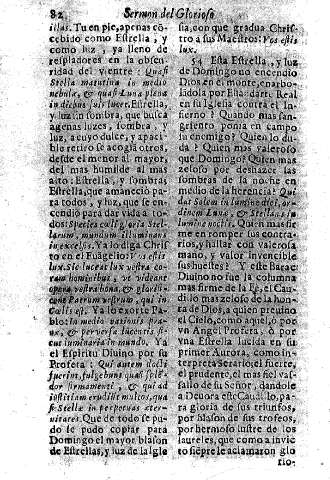 82 Sermon del Glorioso
illas. Tu en pie, apenas cõ-
cebido como Estrella, y
como luz, ya lleno de
resplãdores en la obscu-
ridad del vientre: Quasi
Stella matutina in medio
nebulæ, & quasi Luna plena
in diebus suis lucet. Estrella,
y luz sin sombra, que busca
agenas luzes, sombra, y
luz, a cuyo dulce, y apaci-
ble retiro se acogiò otros,
desde el menor al mayor,
del mas humilde al mas
alto: Estrella, y sombras
Estrella, que amaneciò pa-
ra todos, y luz, que se en-
cendiò para dar vida a to-
dos: Species cœli gloria Stel-
larum, mundum illuminans
in excelsis. Ya lo diga Chris
to en el Euãgelio: Vos estis
lux. Sic luceat lux vestra co-
ram hominibus, vt videant
opera vestra bona, & glorifi-
cent Patrem vestrum, qui in
Cœlis est. Ya lo exorte Pa-
blo: In medio nationis pra-
uæ, & peruersæ lucetis si-
cut luminaria in mundo. Ya
el Espiritu Diuino por su
Profeta: Qui autem docti
fuerint, fulgebunt quasi splē-
dor firmamenti, & qui ad
iustitiam erudiũt multos, qua
si Stellæ in perpetuas æter-
nitates. Que de todo se pu-
do se pudo copiar para
Domingo el mayor blason
de Estrellas, y luz de la Igle
sia, con que gradua Chris-
tro a sus Maestros: Vos estis
lux.
54 Esta Estrella, y luz
de Domingo no encendio
Dios en el monte, enarbo-
lãdola por Estandarte Real
en su Iglesia contra el In-
fierno? Quando mas san-
griento ponia en campo
su enemigo? Quien lo du-
da? Quien mas valeroso
que Domingo? Quien mas
zeloso por deshazer las
sombras de la noche en
medio de la heregia? Qui
dat Solem in lumine diei, or-
dinem Lunæ, & Stellarum in
lumine noctis. Quien mas fir-
me en romper sus contra-
rios, y hallar con valerosa
mano, y valor invencible
sus huestes? Y este Barac
Diuino no fue la columna
mas firme de la Fe, el Cau-
dillo mas zeloso de la hon-
ra de Dios, a quien preuino
el Cielo, como aquel, ò por
vn Angel Profeta, ò por
vna Estrella lucida en su
primer Aurora, como in-
terpreta Serario, el fuerte,
el prudente, el mas fiel va-
sallo de su Señor, dandole
a Deuora este Caudillo, pa-
ra gloria de sus triunfos,
por blason de sus trofeos,
por hermoso lustre de los
laureles, que como a invic
to siẽpre le aclamaron glo
rio-